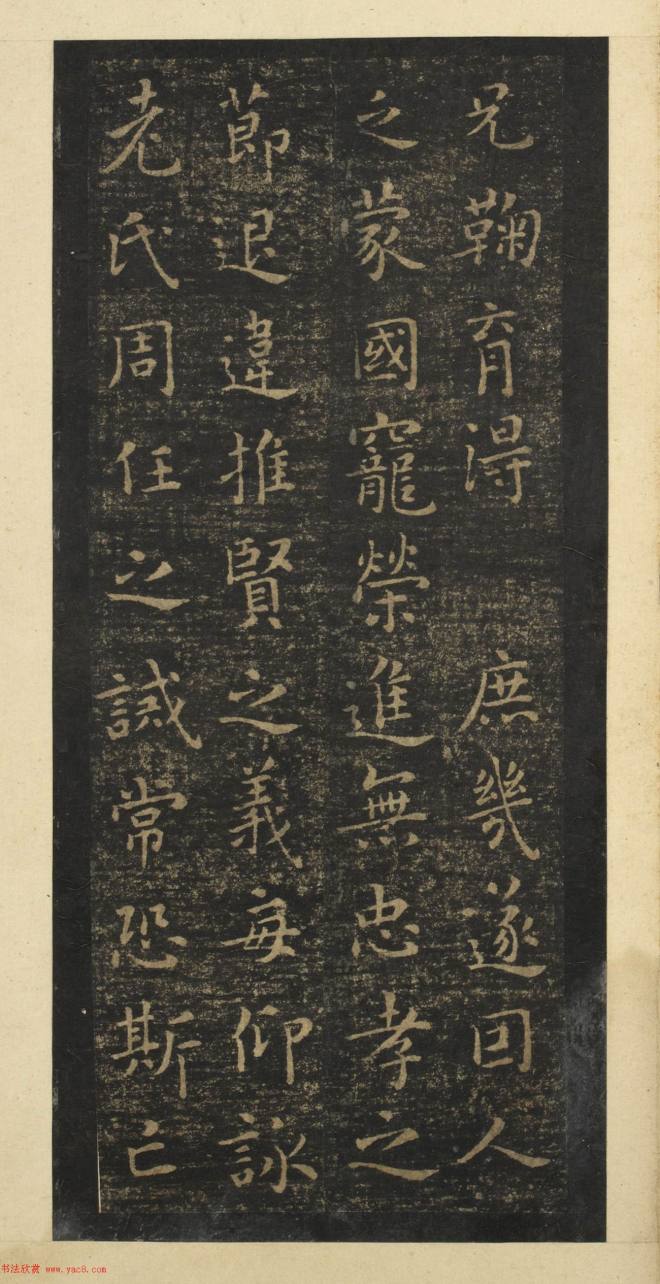 兄鞠育得 庶幾遂因人
之蒙國寵榮進無忠孝之
節退違推賢之義每仰詠
老氏周任之誡常恐斯亡
书法欣赏 www.yac8.com